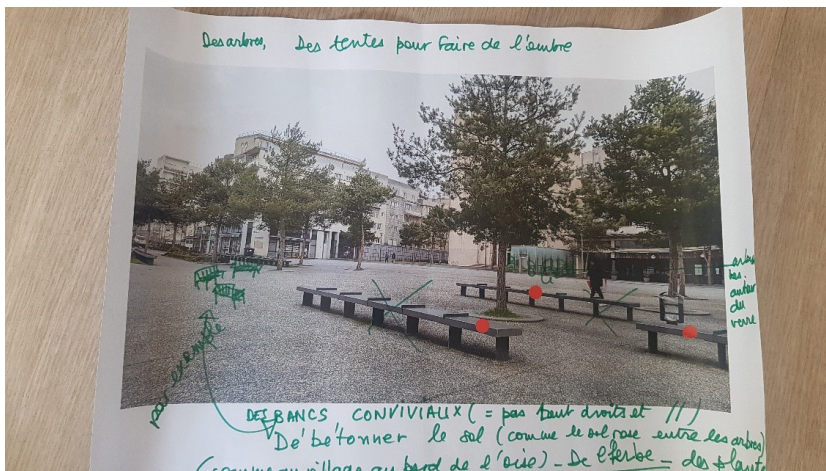 Des arbres, Des tentes pour faire de l'ombre
arbres
bas
autour
du
verre
par exemple
DES BANCS CONVIVIAUX (= pas tout droits et //)
Dé bétonner le sol (comme le sol rose entre les arbres)
(comme au village au bord de l'oise) - De l'herbe - des plantes